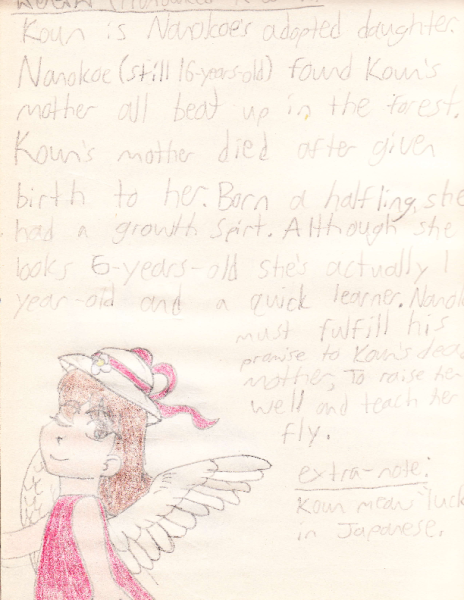 Koun is Nanokoe's adopted daughter.
Nanokoe (still 16-years-old) found Koun's
mother all beat up in the forest.
Koun's mother died after given
birth to her. Born a halfling, she
had a growth spirt. Although she
looks 6-years-old she's actually 1
year-old and a quick learner.
must fulfill his
promise to Koun's
mother, To raise her
well and teach her
fly.
extra-note:
Koun mean "luck
in Japanese.